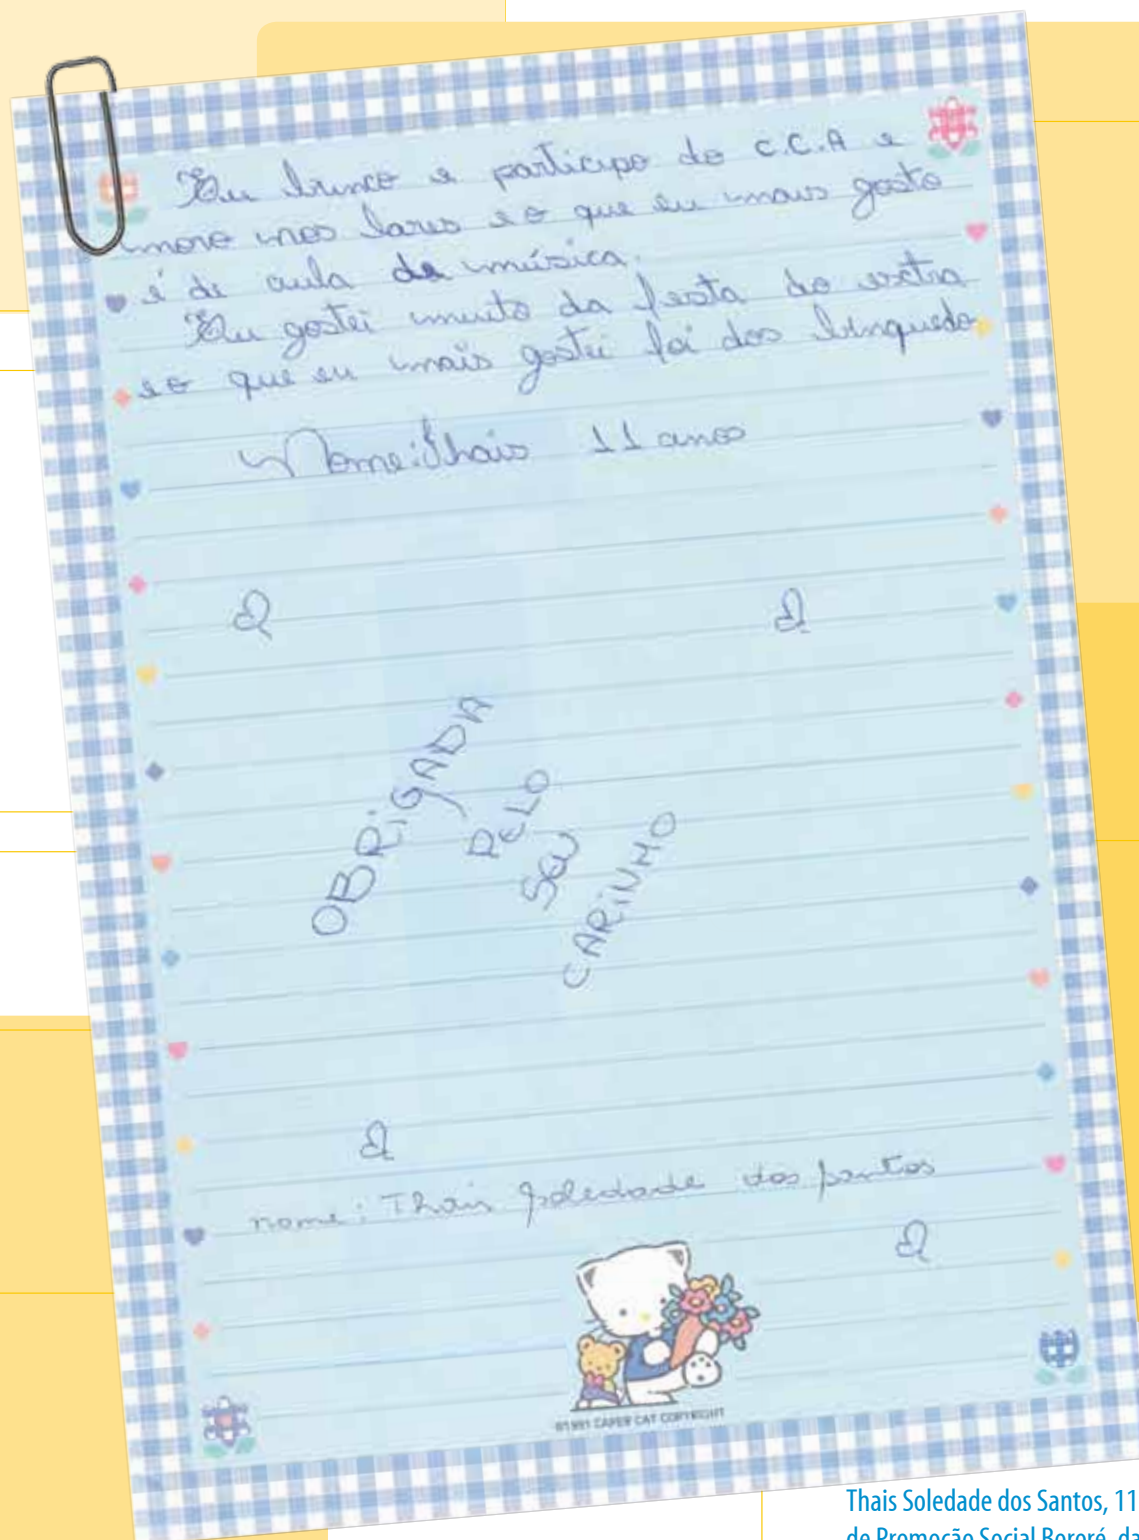 Eu brinco e participo do C.C.A e
moro nos lares e o que eu mais gosto
é de aula de música.
Eu gostei muito da festa do extra
e o que eu mais gostei foi dos binquedo
Nome: Thais 11 anos
OBRiGADA
PELO
SEU
CARiNHO
nome: Thais Soledade dos santos
©1991 CAPER CAT COPYRIGHT
Thais Soledade dos Santos, 11
de Promoção Social Bororé, da